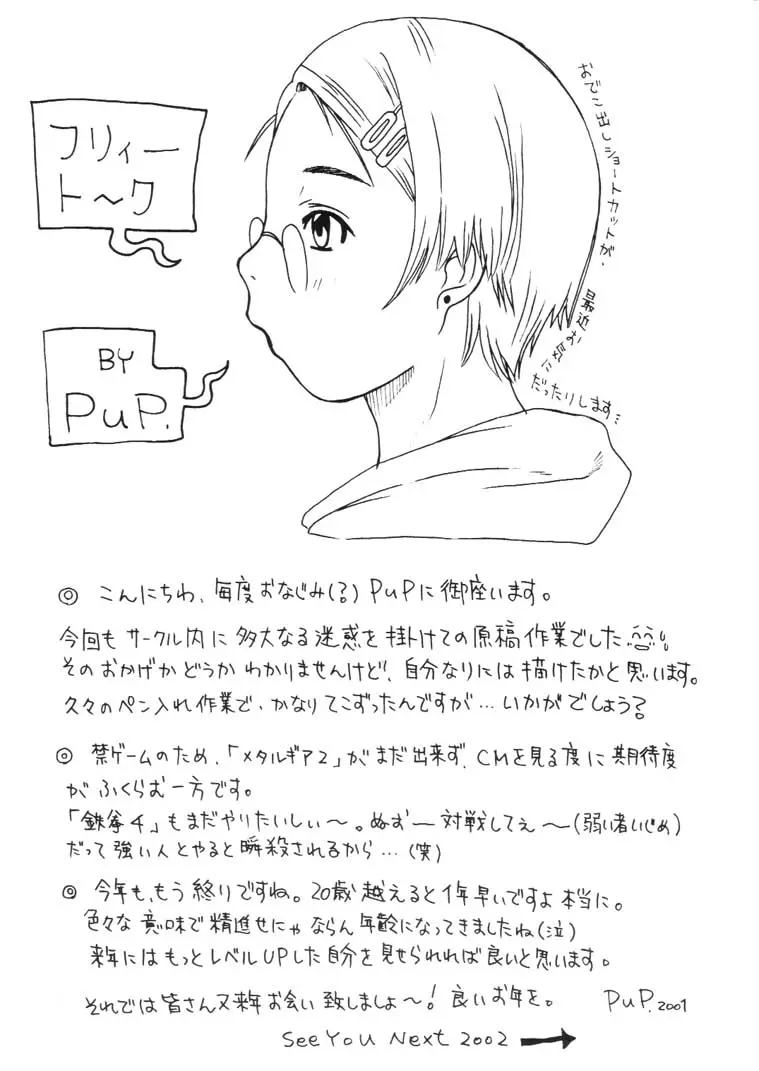 フリィー
ト～ク
BY
PuP.
おでこ出しショートカットが、
最近お
だったりします…
◎ こんにちわ、毎度おなじみ(?) PuPに御座います。
今回もサークル内に多大なる迷惑を掛けての原稿作業でした
そのおかげかどうかわかりませんけど、自分なりには描けたかと思います。
久々のペン入れ作業で、かなりてこずったんですが…いかがでしょう?
◎ 禁ゲームのため、「メタルギア2」がまだ出来ず、CMを見る度に期待度
がふくらむ一方です。
「鉄拳4」もまだやりたいしぃ～。ぬおー対戦してえ～(弱い者いじめ)
だって強い人とやると瞬殺されるから…(笑)
◎ 今年も、もう終りですね。20歳越えると1年早いですよ本当に。
色々な意味で精進せにゃならん年齢になってきましたね(泣)
来年にはもっとレベルUPした自分を見せられれば良いと思います。
それでは皆さん又来年お会い致しましょ～! 良いお年を。 PuP.2001
See You Next 2002